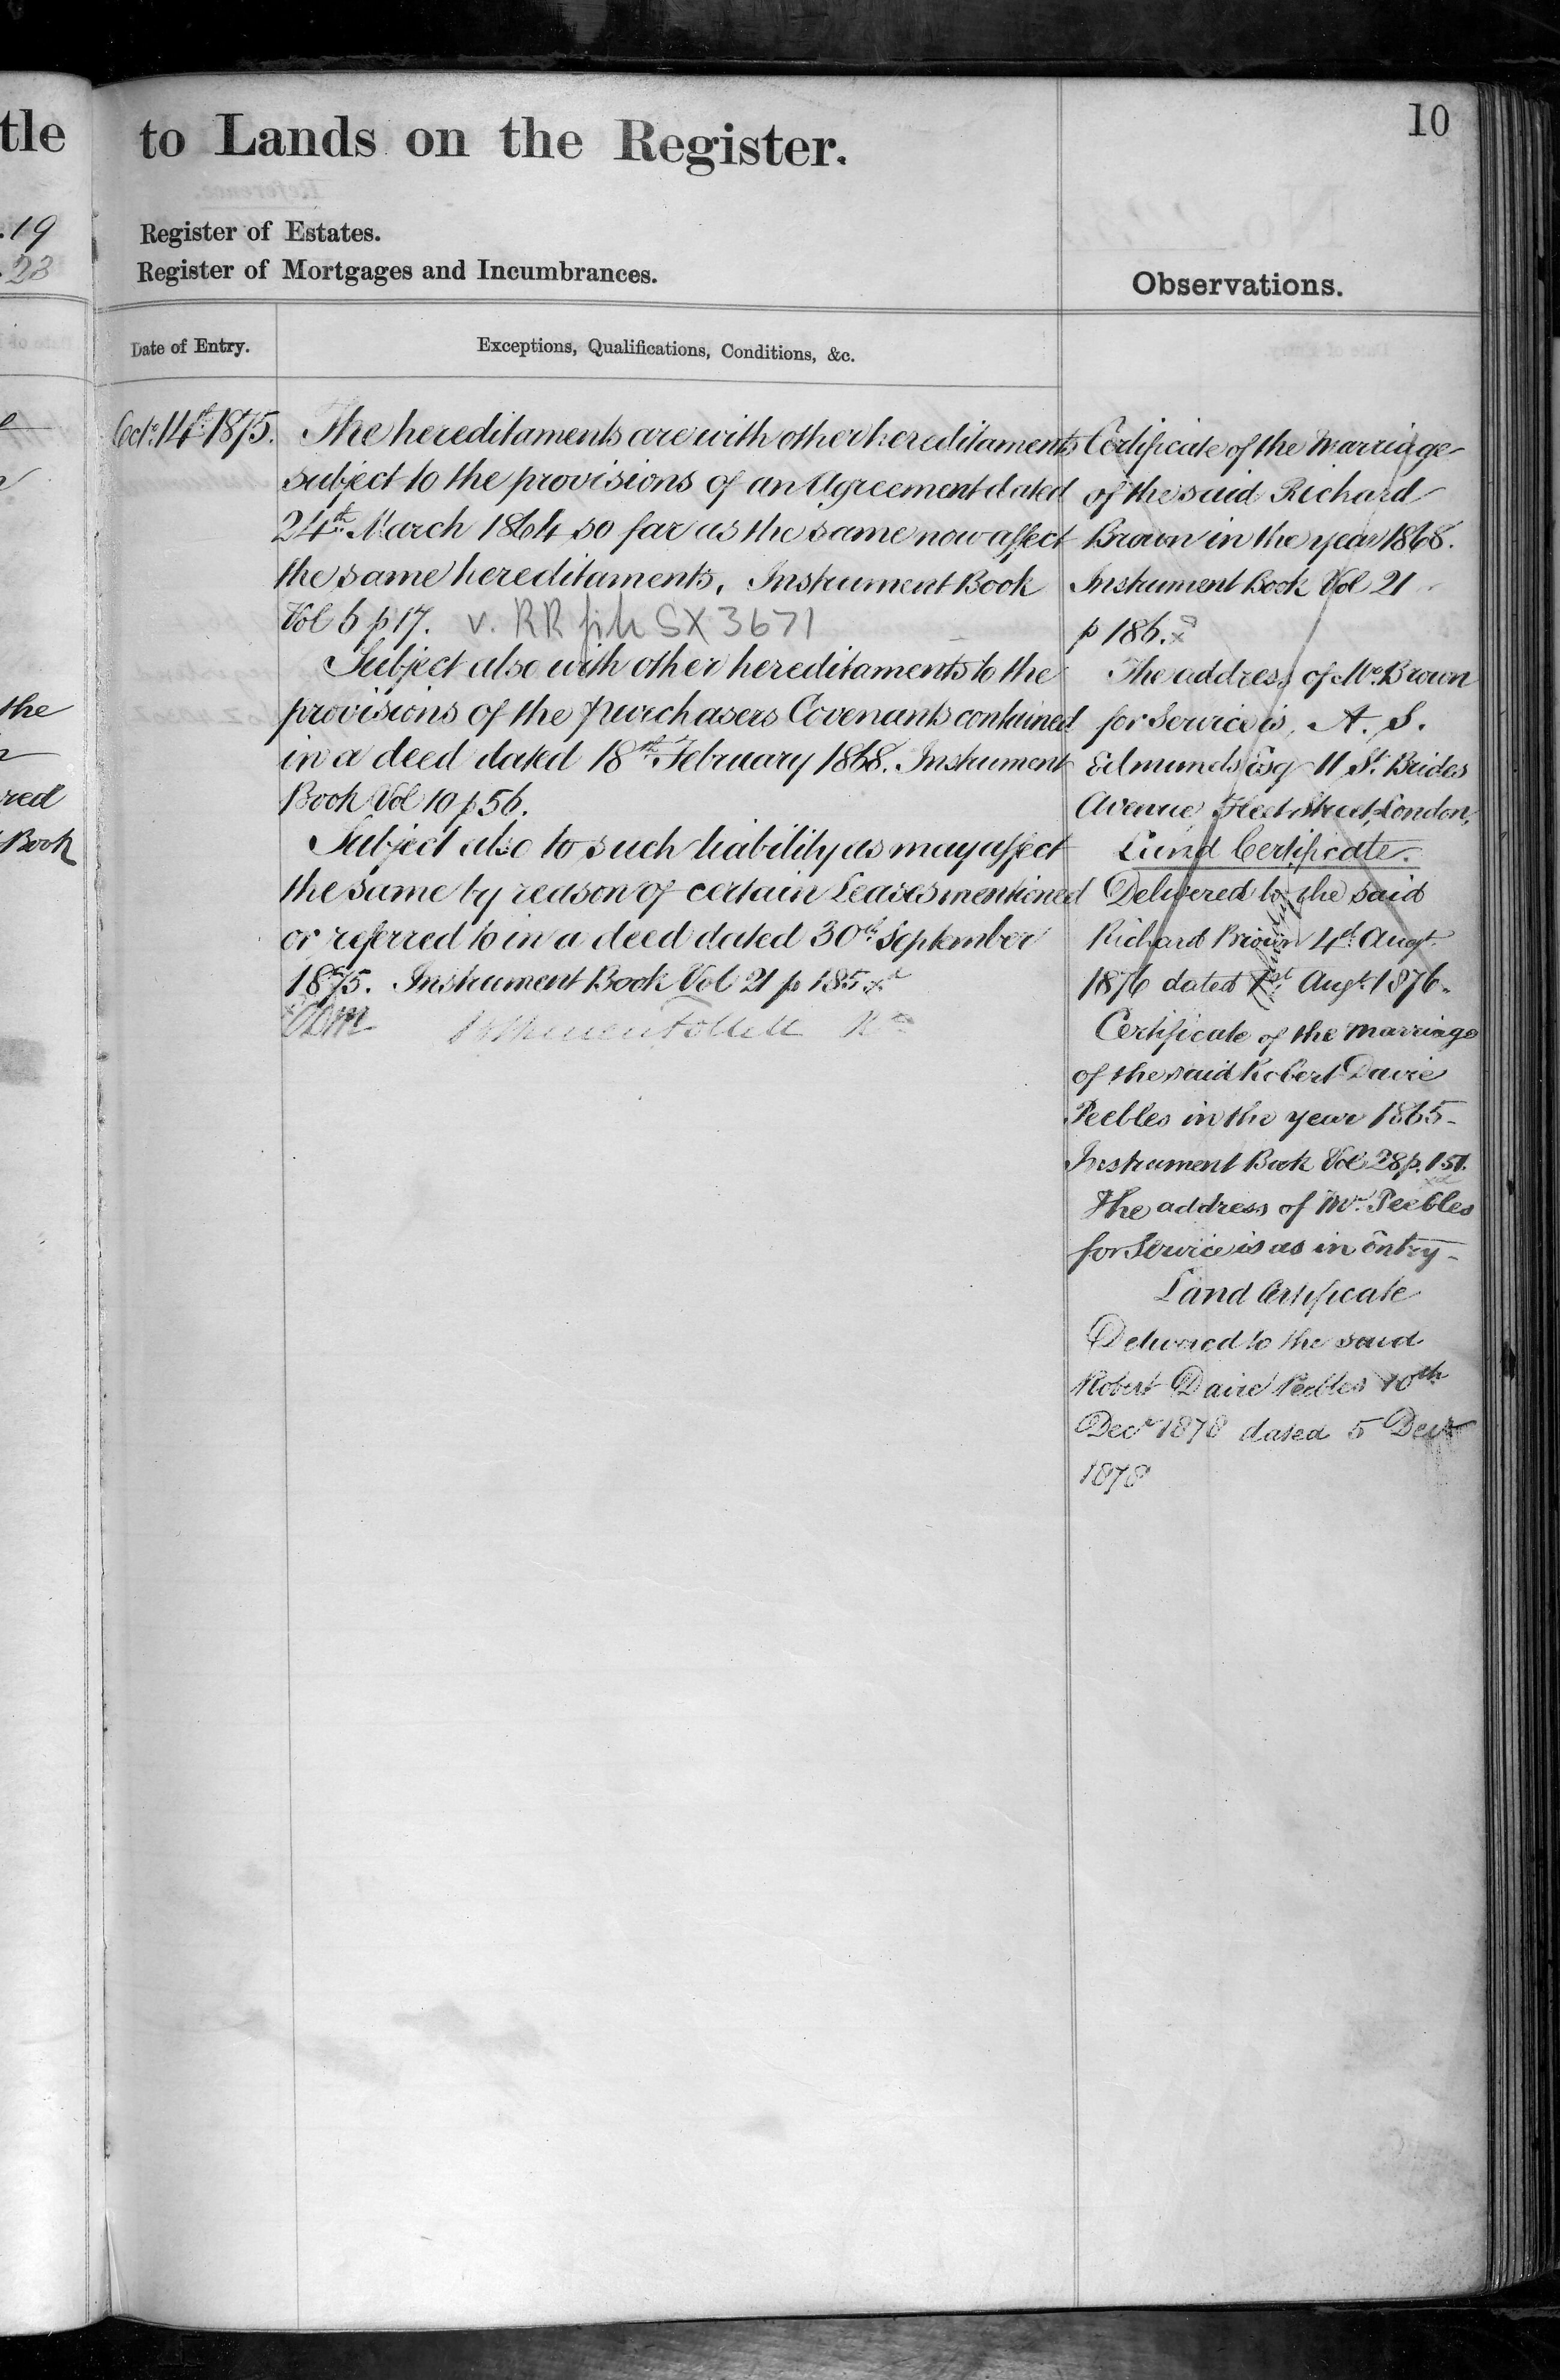 tle
.19
.23
the
red
Book
to Lands on the Register.
10
Register of Estates.
Register of Mortgages and Incumbrances.
Observations.
Date of Entry.
Exceptions, Qualifications, Conditions, &c.
Octr. 14th 1875.
The hereditaments are with other hereditaments
subject to the provisions of an Agreement dated
24th March 1864 so far as the same now affect
the same hereditaments. Instrument Book
Vol 6 p 17. v. RR file SX 3671
Subject also with other hereditaments to the
provisions of the purchasers Covenants contained
in a deed dated 18th February 1868. Instrument
Book Vol 10 p 56.
Subject also to such liability as may affect
the same by reason of certain Leases mentioned
or referred to in a deed dated 30th September
1875. Instrument Book Vol 21 p 185
Certificate of the Marriage
of the said Richard
Brown in the year 1868.
Instrument Book Vol 21
p 186.
The address of Mr. Brown
for Service is, A. S.
Edmunds Esq 11 St. Brides
Avenue Fleet Street, London,
Land Certificate.
Delivered to the said
Richard Brown 4th Augt.
1876 dated 1st Augt. 1876.
Certificate of the Marriage
of the said Robert Davie
Peebles in the year 1865-
Instrument Book Vol 28 p. 151.
The address of Mr. Peebles
for Service is as in Entry-
Land Certificate
Delivered to the said
Robert Davie Peebles 10th
Decr 1878 dated 5 Decr
1878